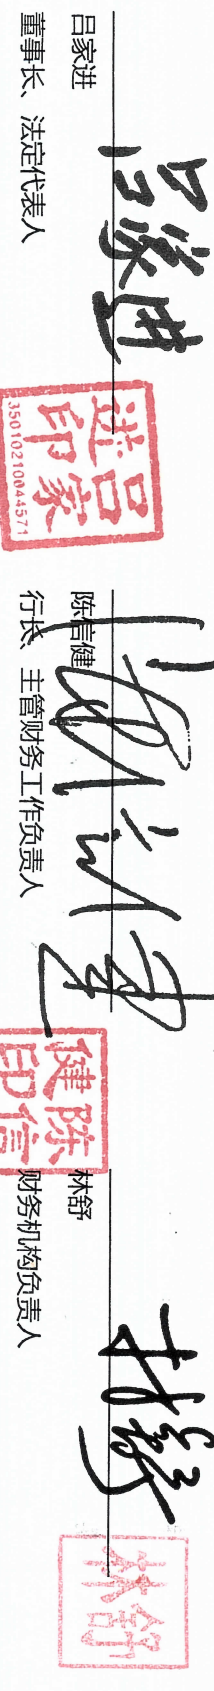 吕家进
吕家进
董事长、法定代表人
吕家
进印
35010210044571
陈信健
陈信健
行长、主管财务工作负责人
陈信
健印
林舒
林舒
财务机构负责人
林舒